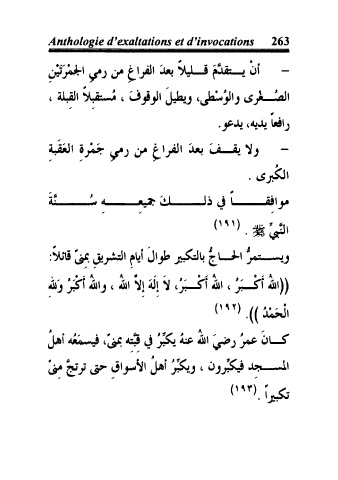 Anthologie d'exaltations et d'invocations 263
– أنْ يستقدَّمَ قليلاً بعدَ الفراغِ من رميِ الجمْرَتَيْنِ
الصُّغْرى والوُسْطى، ويطيلَ الوقوفَ ، مُستقبلاً القبلة ،
رافعاً يديه، يدعو.
– ولا يقفَ بعدَ الفراغِ من رميِ جَمْرةِ العَقَبةِ
الكبرى .
موافقاً في ذلك جميعه سُنَّةَ
النَّبيِّ ﷺ . (١٩١)
ويستمرُّ الحاجُّ بالتكبير طوالَ أيامِ التشريقِ بمِنىً قائلاً:
((اللهُ أَكْبَرُ ، اللهُ أَكْبَرُ، لاَ إِلَهَ إِلاَّ اللهُ ، واللهُ أَكْبَرُ وَللهِ
الْحَمْدُ )). (١٩٢)
كانَ عمرُ رضيَ اللهُ عنهُ يكبِّرُ في قبَّتِه بمنىً، فيسمَعُه أهلُ
المسجد فيكبِّرون ، ويكبِّرُ أهلُ الأسواقِ حتى ترتجَّ مِنىً
تكبيراً .(١٩٣)